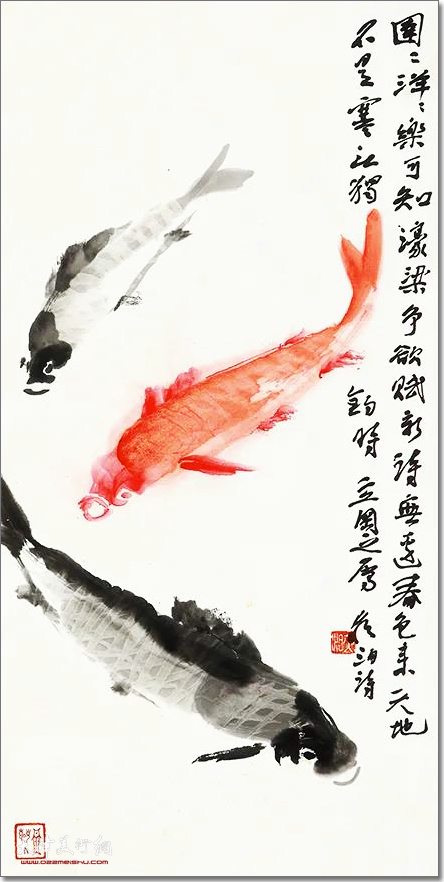 圉〻洋〻樂可知濠梁争欲賦新詩無邊春色来天地
不是寒江獨
釣時 立国之属 泊詩
www.022meishu.com